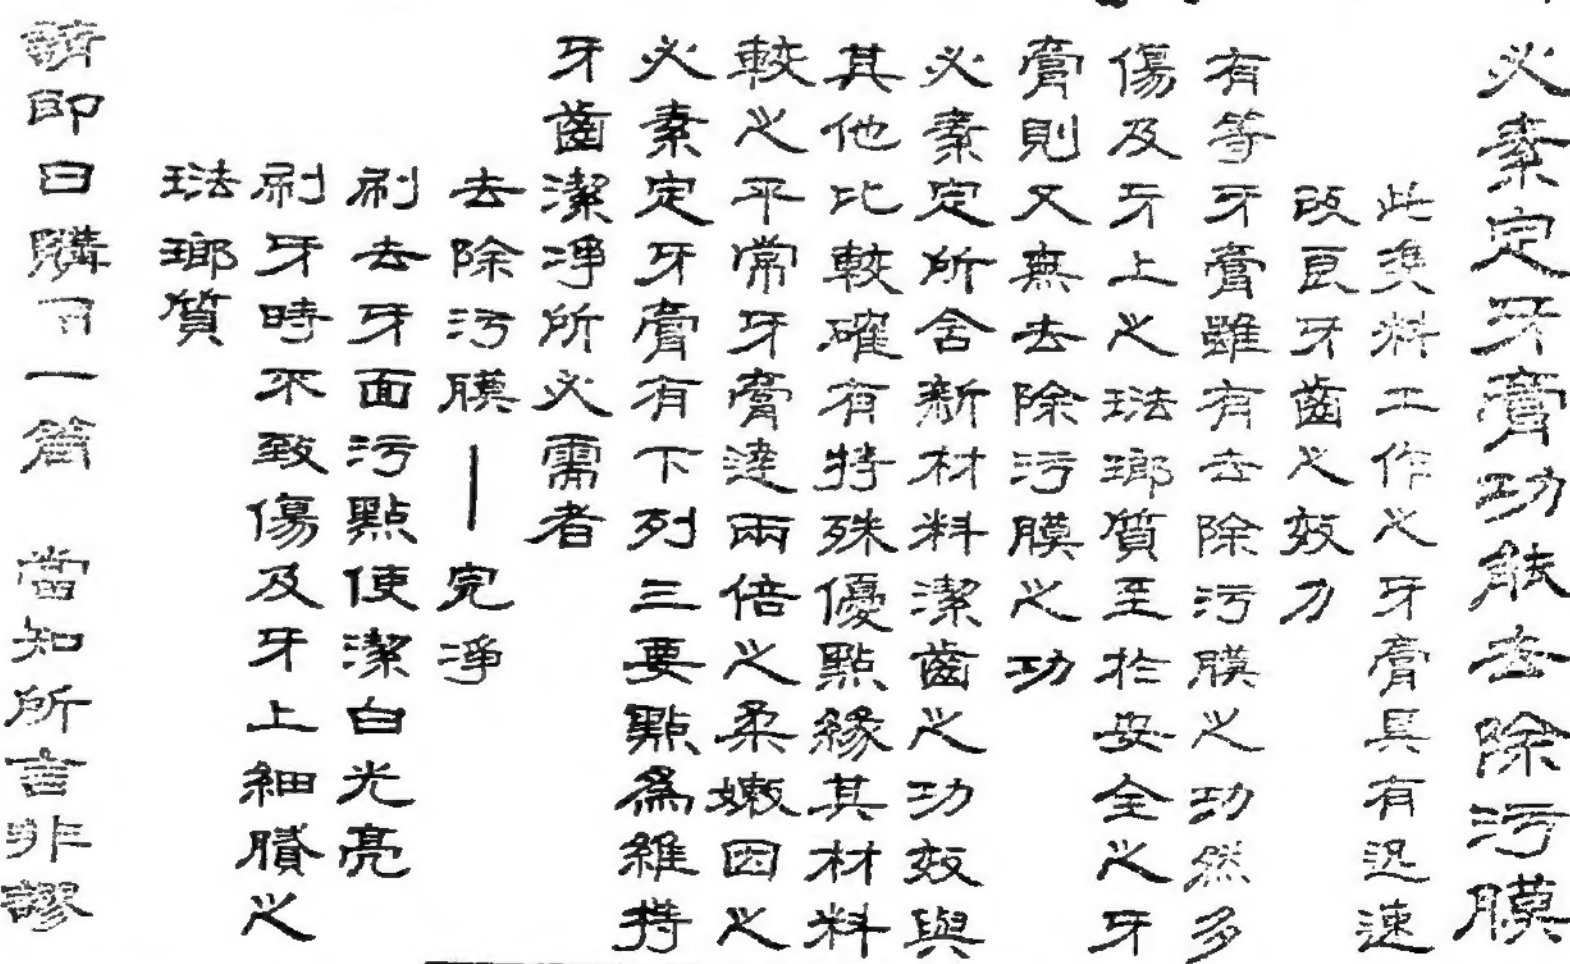 必素定牙膏功能去除污膜
此準料工作之牙膏具有迅速
改良牙齒之效力
有等牙膏雖有去除污膜之功然多
傷及牙上之琺瑯質至於安全之牙
膏則又無去除污膜之功
必素定所含新材料潔齒之功效與
其他比較確有特殊優點緣其材料
較之平常牙膏達兩倍之柔嫩因之
必素定牙膏有下列三要點為維持
牙齒潔淨所必需者
去除污膜—完淨
刷去牙面污點使潔白光亮
刷牙時不致傷及牙上細膩之
琺瑯質
請即日購司一筒 當知所言非謬